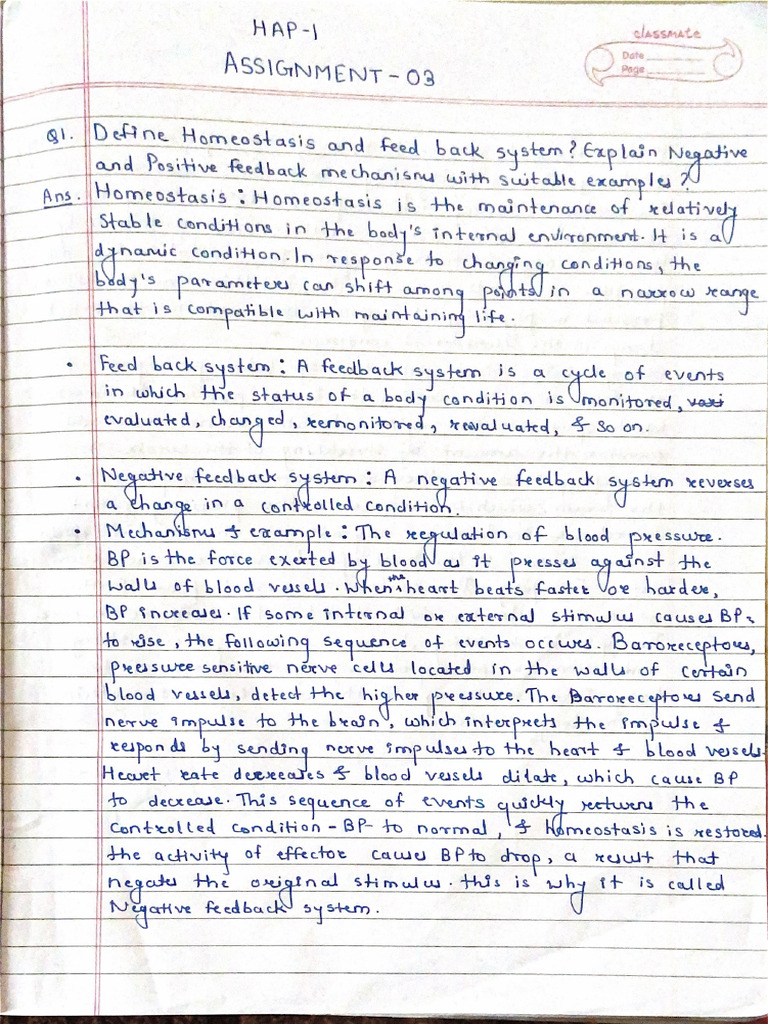 HAP-1
classmate
Date
Page
ASSIGNMENT-03
Q1. Define Homeostasis and feed back system? Explain Negative
and Positive feedback mechanisms with suitable examples?
Ans. Homeostasis: Homeostasis is the maintenance of relatively
stable conditions in the body's internal environment. It is a
dynamic condition. In response to changing conditions, the
body's parameters can shift among points in a narrow range
that is compatible with maintaining life.
• Feed back system: A feedback system is a cycle of events
in which the status of a body condition is monitored,
evaluated, changed, remonitored, revaluated, & so on.
• Negative feedback system: A negative feedback system reverses
a change in a controlled condition.
• Mechanisms & example: The regulation of blood pressure.
BP is the force exerted by blood as it presses against the
walls of blood vessels. When the heart beats faster or harder,
BP increases. If some internal or external stimulus causes BP
to rise, the following sequence of events occurs. Baroreceptors,
pressure sensitive nerve cells located in the walls of certain
blood vessels, detect the higher pressure. The Baroreceptors send
nerve impulse to the brain, which interprets the impulse &
responds by sending nerve impulses to the heart & blood vessels.
Heart rate decreases & blood vessels dilate, which cause BP
to decrease. This sequence of events quickly returns the
controlled condition - BP - to normal, & homeostasis is restored.
the activity of effector causes BP to drop, a result that
negates the original stimulus. this is why it is called
Negative feedback system.